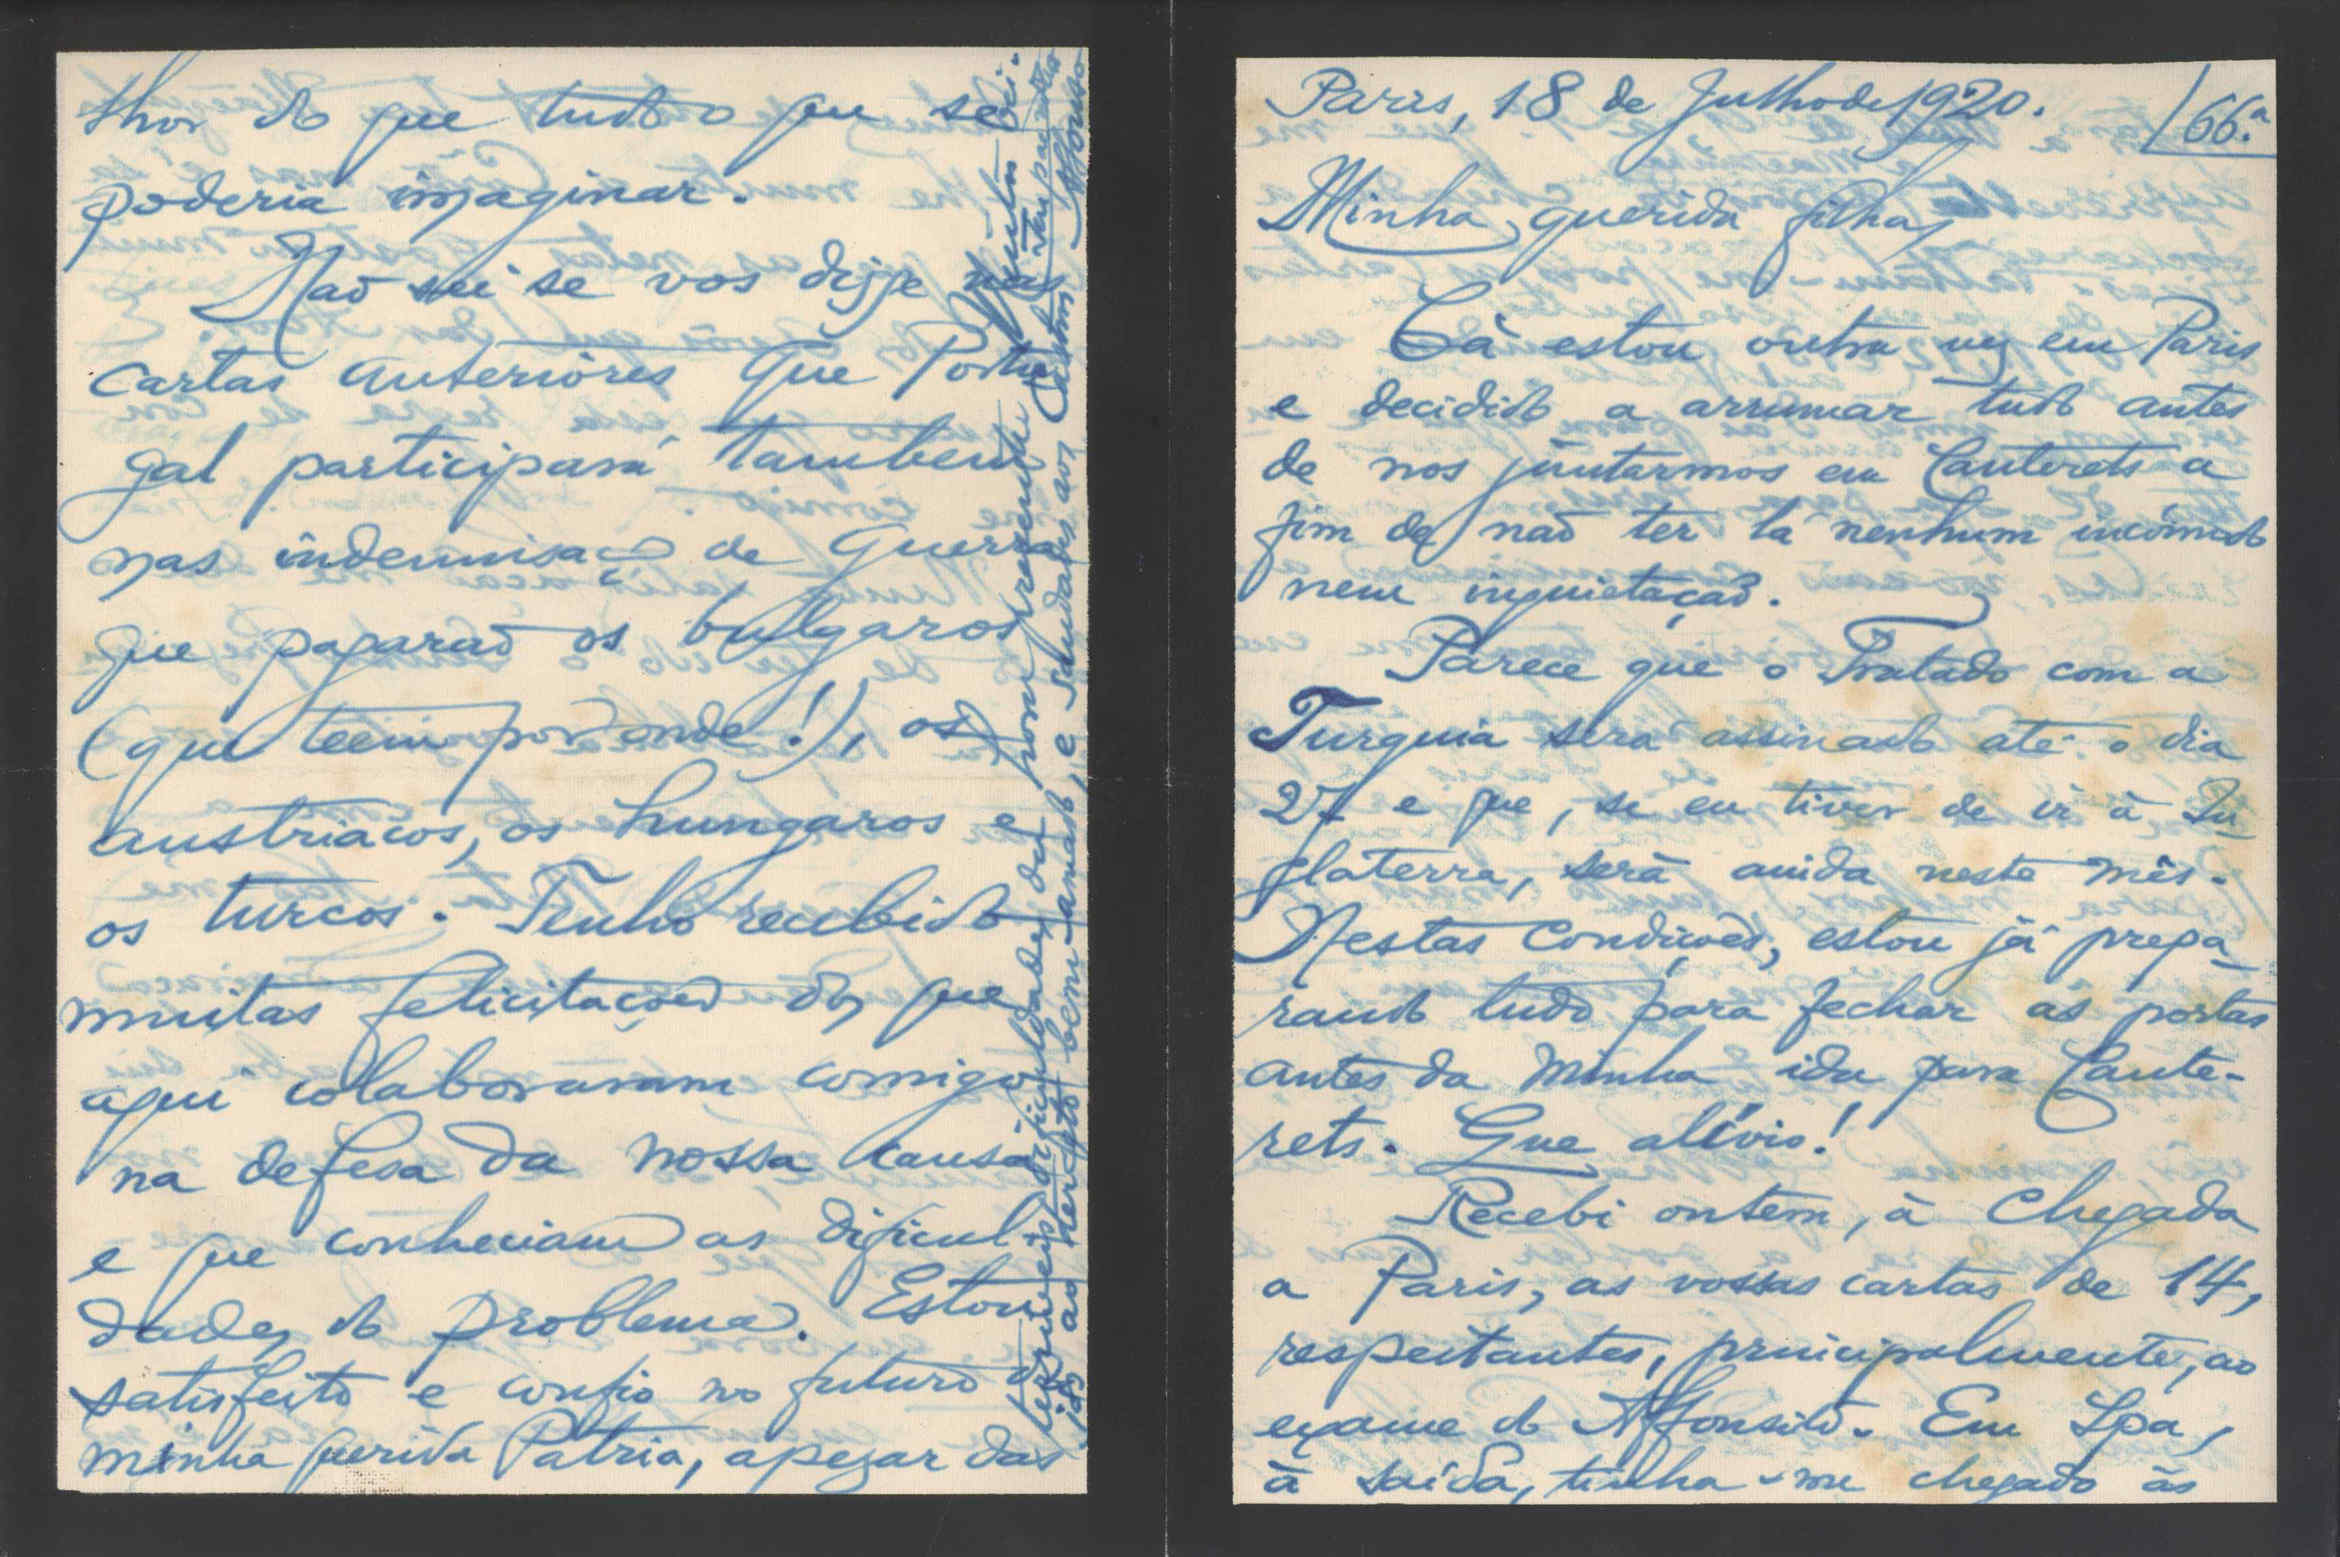 Paris, 18 de Julho de 1920.
166.ª
Minha querida filha,
Cà estou outra vez em Paris
e decidido a arrumar tudo antes
de nos juntarmos em Cauterets a
fim de não ter lá nenhum incómodo
nem inquietação.
Parece que o Tratado com a
Turquia será assinado até o dia
27 e que, se eu tiver de ir à In-
glaterra, será ainda neste mês.
Nestas condições, estou já prepa-
rando tudo para fechar as portas
antes da minha ida para Caute-
rets. Que alívio!
Recebi ontem, à chegada
a Paris, as vossas cartas de 14,
respeitantes, principalmente, ao
exame do Affonsito. Em Spa,
à saída, tinha-me chegado às
lhor do que tudo o que se
poderia imaginar.
Não sei se vos disse nas
cartas anteriores que Portu
gal participará tambem
nas indemnisações de guerra
que pagarão os bulgaros
(que teem por onde!), os
austriacos, os hungaros e
os turcos. Tenho recebido
muitas felicitações dos que
aqui colaboraram comigo
na defesa da nossa causa
e que conheciam as dificul-
dades do problema. Estou
satisfeito e confio no futuro da
minha querida Patria, apezar das
terriveis dificuldades do presente. Muitos bei-
jos ao neto bem-amado, e saudades aos do teu pai
Affonso